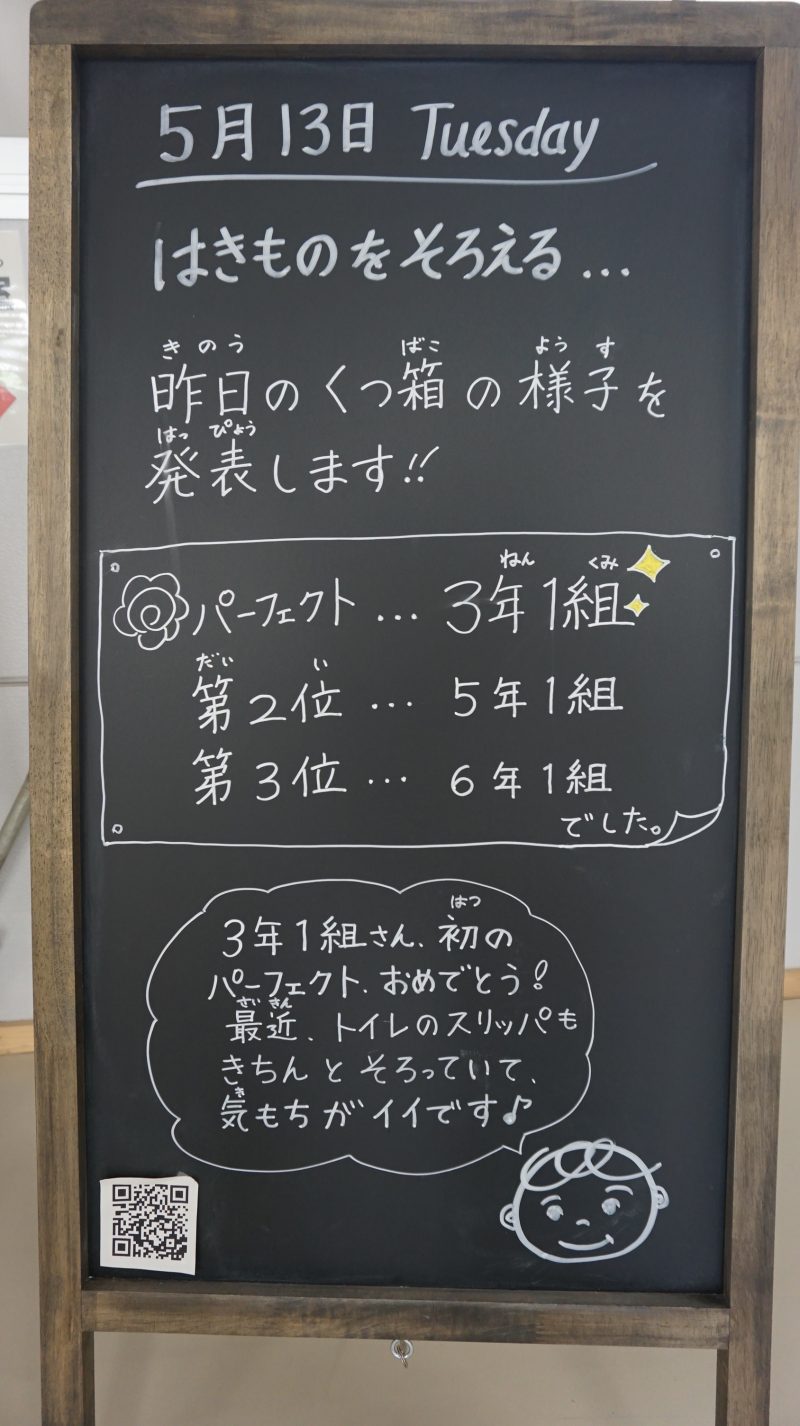 5月13日 Tuesday
はきものをそろえる...
きのう ばこ ようす
昨日のくつ箱の様子を
はっぴょう
発表します!!
ねん くみ
パーフェクト... 3年1組
だい い
第2位... 5年1組
第3位... 6年1組
でした。
はつ
3年1組さん、初の
パーフェクト、おめでとう!
さいきん
最近、トイレのスリッパも
きちんとそろっていて、
き
気もちがイイです♪